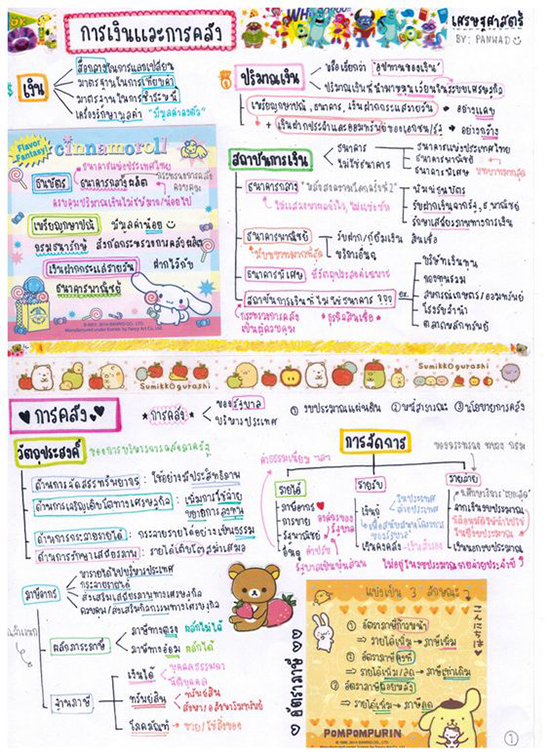 การเงินและการคลัง
เศรษฐศาสตร์
BY: PANHAD
เงิน
สื่อกลางในการแลกเปลี่ยน
มาตรฐานในการเทียบค่า
มาตรฐานในการชำระหนี้
เครื่องรักษามูลค่า "มีมูลค่าลงตัว"
Flavor Fantasy
cinnamoroll
ธนาคารแห่งประเทศไทย
ธนบัตร ธนาคารกลางผลิต
ควบคุมปริมาณเงินไม่ให้มาก/น้อยไป
เหรียญกษาปณ์ มีมูลค่าน้อย
กรมธนารักษ์ สังกัดกระทรวงการคลังผลิต
เงินฝากกระแสรายวัน ฝากไว้กับ
ธนาคารพาณิชย์
ปริมาณเงิน
หรือเรียกว่า "อุปทานของเงิน"
ปริมาณเงินที่นำมาหมุนเวียนในระบบเศรษฐกิจ
เหรียญกษาปณ์, ธนาคาร, เงินฝากกระแสรายวัน → อย่างแคบ
+ เงินฝากประจำและออมทรัพย์ของเอกชน/รัฐ → อย่างกว้าง
สถาบันการเงิน
ธนาคาร
ไม่ใช่ธนาคาร
ธนาคารแห่งประเทศไทย
ธนาคารพาณิชย์
ธนาคารพิเศษ
บทบาทมากสุด
ธนาคารกลาง
ไม่แสวงหาผลกำไร, ไม่แข่งขัน
พิมพ์ธนบัตร
รับฝากเงินจากรัฐ, ธนาคาร
รักษาเสถียรภาพทางการเงิน
ธนาคารพาณิชย์
มีบทบาทมากที่สุด
รับฝาก/กู้ยืมเงิน
บริการอื่นๆ
สินเชื่อ
ธนาคารพิเศษ มีวัตถุประสงค์เฉพาะ
สถาบันการเงินที่ไม่ใช่ธนาคาร
กระทรวงการคลัง
เป็นผู้ควบคุม
"ธุรกิจสินเชื่อ"
ex.
บริษัทเงินทุน
กองทุนรวม
สหกรณ์เกษตร/ออมทรัพย์
โรงรับจำนำ
ตลาดหลักทรัพย์
Sumikkogurashi
Sumikkogurashi
การคลัง
*การคลัง*
ของรัฐบาล
บริหารประเทศ
① งบประมาณแผ่นดิน ② หนี้สาธารณะ ③ นโยบายการคลัง
วัตถุประสงค์ ของการบริหารการคลังภาครัฐ
ด้านการจัดสรรทรัพยากร : ใช้อย่างมีประสิทธิภาพ
ด้านการเจริญเติบโตทางเศรษฐกิจ : เพิ่มการใช้จ่าย
ขยายการลงทุน
ด้านการกระจายรายได้ : กระจายรายได้อย่างเป็นธรรม
ด้านการรักษาเสถียรภาพ : รายได้เติบโตสม่ำเสมอ
การจัดการ
ค่าธรรมเนียม ฯลฯ
รายได้
ภาษีอากร
การขาย
รัฐพาณิชย์
อื่นๆ
รายรับ
เงินกู้
ในประเทศ
ต่างประเทศ
เงินคงคลัง
รายจ่าย
รายจ่ายเงินงบประมาณ
เงินนอกงบประมาณ
ภาษีอากร
หารายได้ไปบริหารประเทศ
กระจายรายได้
ส่งเสริมเสถียรภาพทางเศรษฐกิจ
ควบคุม/ส่งเสริมกิจกรรมทางเศรษฐกิจ
ผลักภาระภาษี
ภาษีทางตรง ผลักไม่ได้
ภาษีทางอ้อม ผลักได้
ฐานภาษี
เงินได้
บุคคลธรรมดา
นิติบุคคล
ทรัพย์สิน
ทรัพย์สิน
สังหา/อสังหาริมทรัพย์
โภคภัณฑ์ → ขาย/ใช้สิ่งของ
อัตราภาษี
แบ่งเป็น 3 ลักษณะ
こんにちは
① อัตราภาษีก้าวหน้า
⇒ รายได้เพิ่ม → ภาษีเพิ่ม
② อัตราภาษีคงที่
⇒ รายได้เพิ่ม/ลด → ภาษีเท่าเดิม
③ อัตราภาษีถอยหลัง
⇒ รายได้เพิ่ม → ภาษีลด
POMPOMPURIN
①